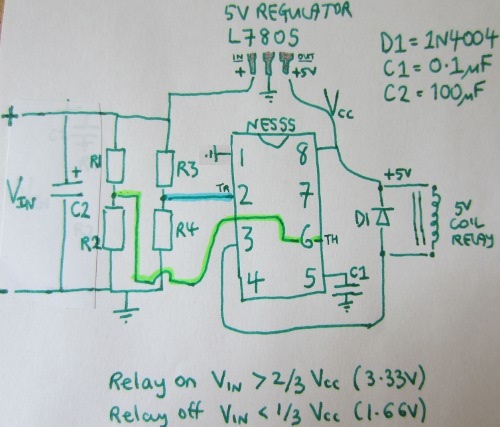 5V REGULATOR
L7805
IN OUT
+ +5V
D1 = 1N4004
C1 = 0.1µF
C2 = 100µF
+
VCC
NE555
R1
R3
1
8
+5V
+
VIN
C2
TR
2
7
D1
5V
COIL
RELAY
R2
R4
3
6
TH
4
5
C1
-
Relay on VIN > 2/3 VCC (3.33V)
Relay off VIN < 1/3 VCC (1.66V)